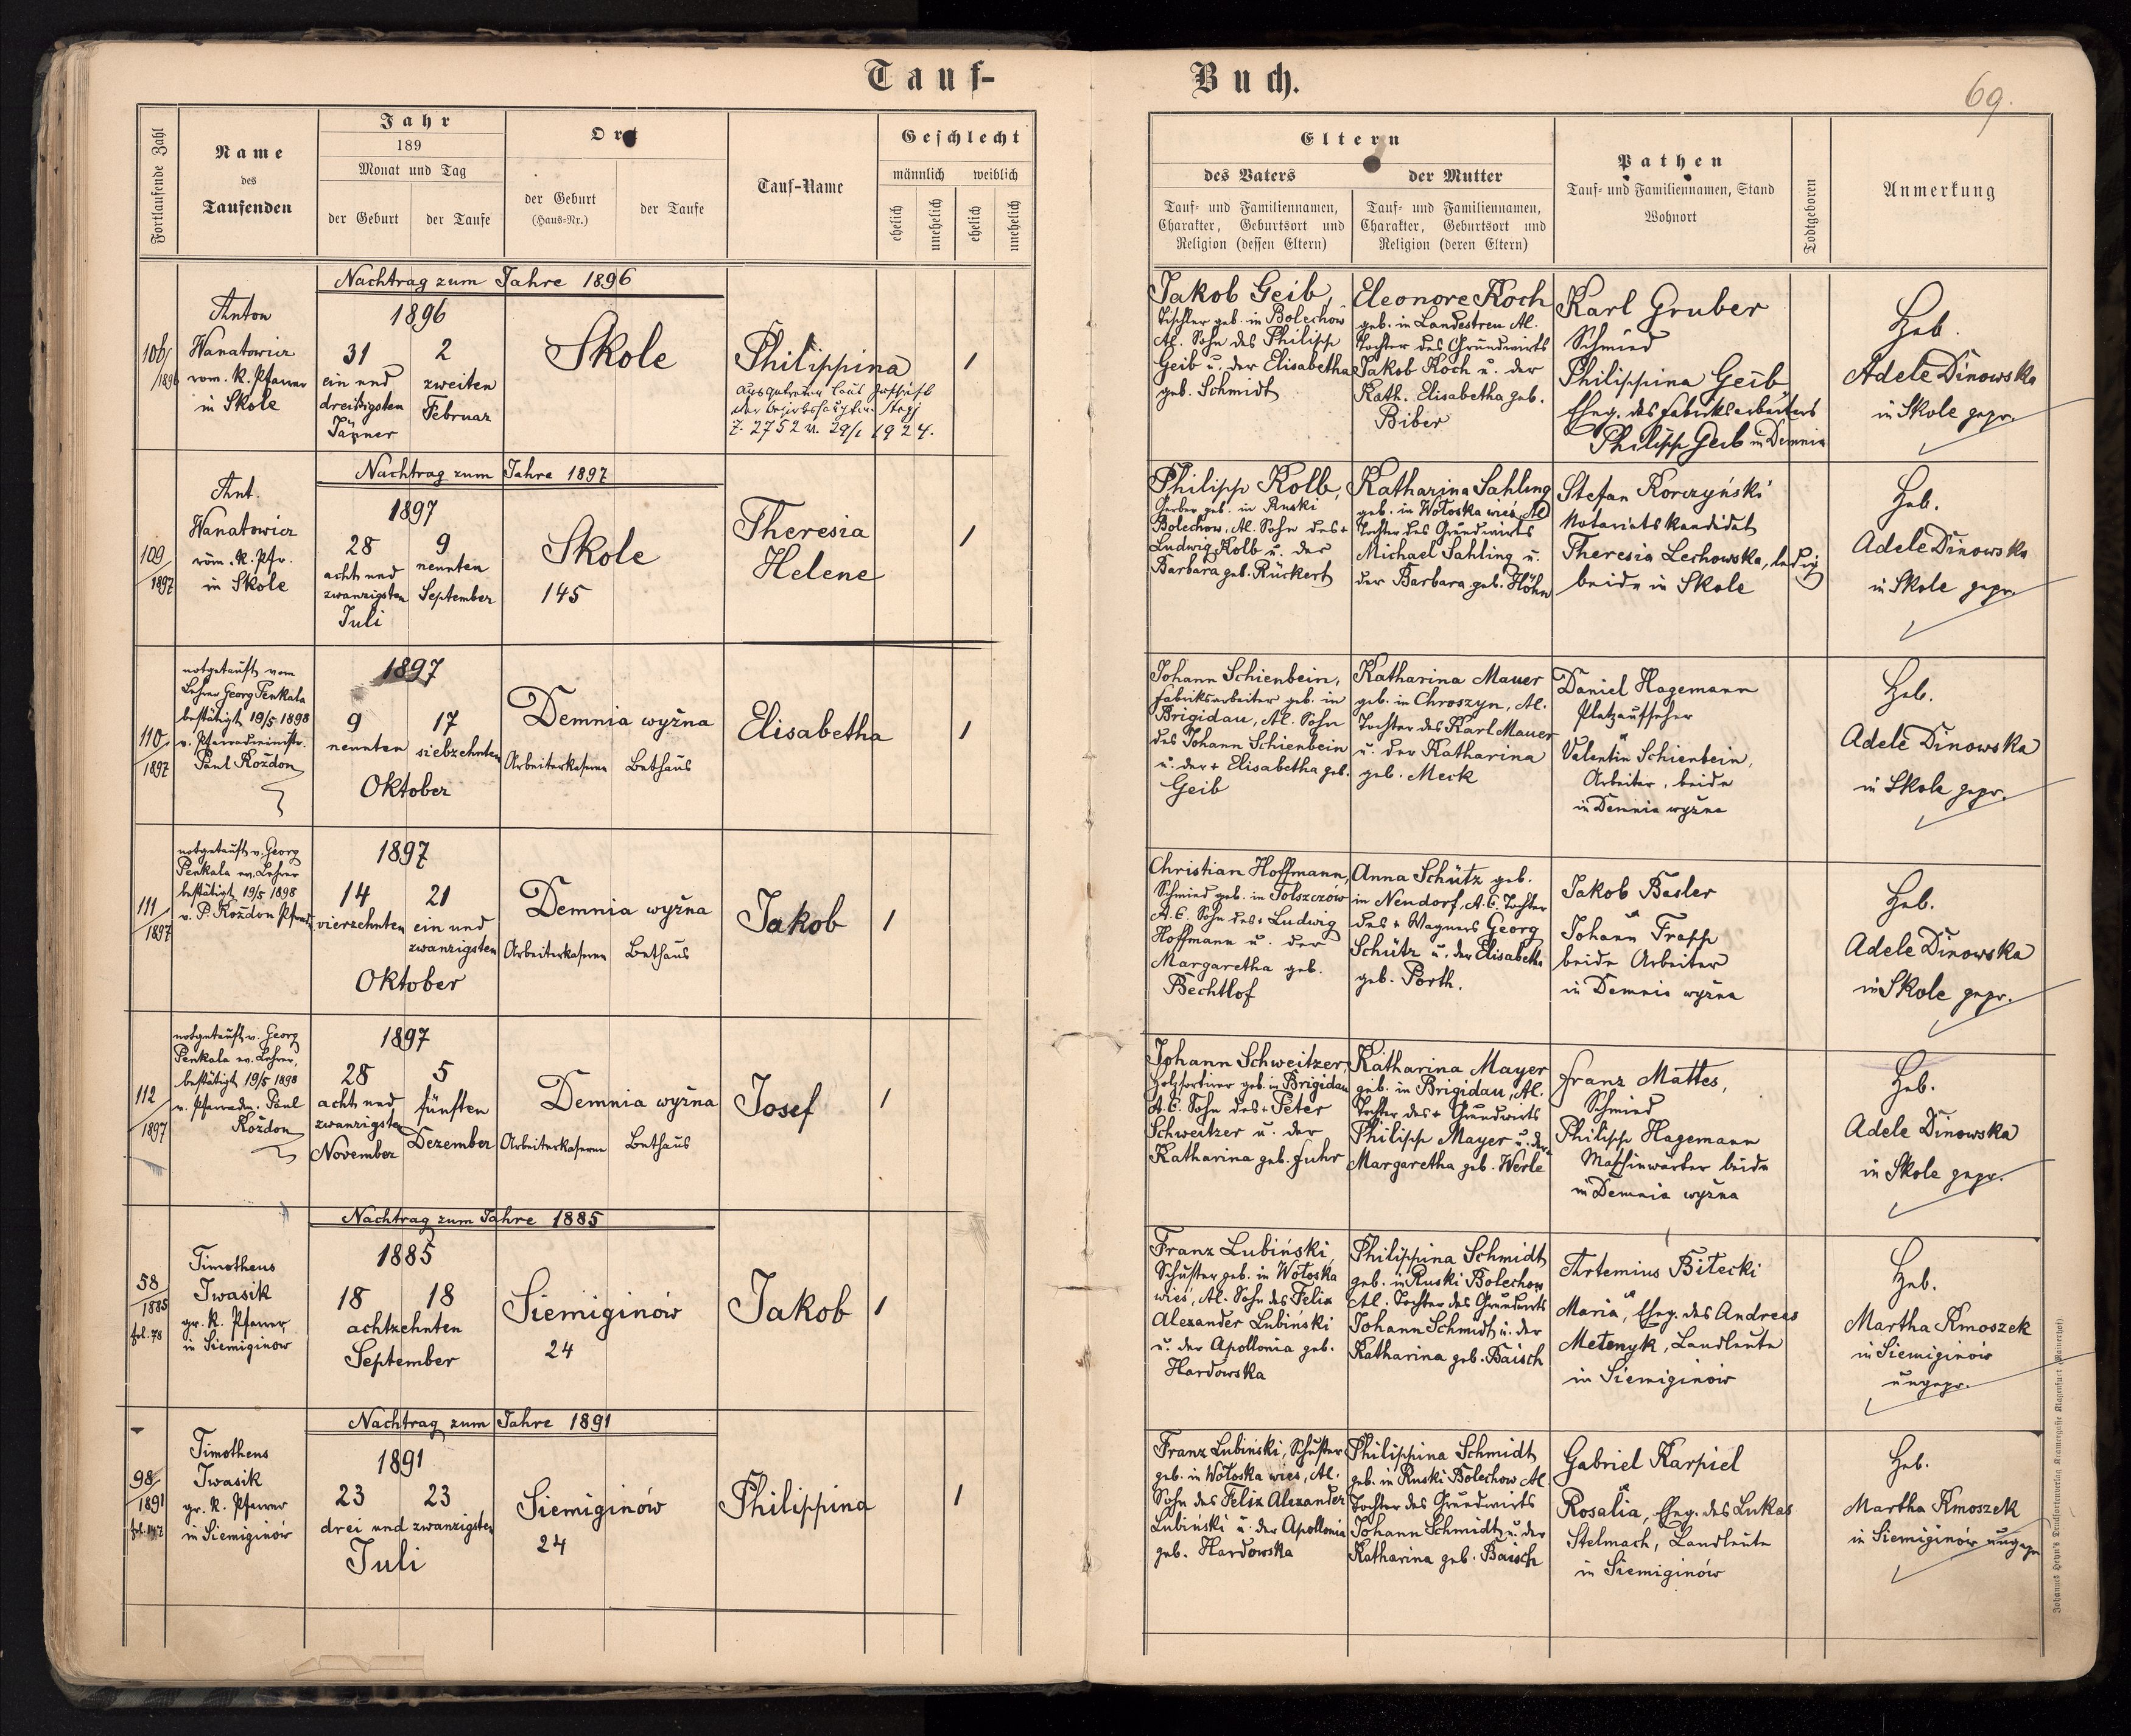 Tauf-
Buch.
69.
Fortlaufende Zahl
Name
des
Taufenden
Jahr
189
Monat und Tag
der Geburt
der Taufe
Ort
der Geburt
(Haus-Nr.)
der Taufe
Tauf-Name
Geschlecht
männlich
weiblich
ehelich
unehelich
ehelich
unehelich
Eltern
des Vaters
Tauf- und Familiennamen,
Charakter, Geburtsort und
Religion (dessen Eltern)
der Mutter
Tauf- und Familiennamen,
Charakter, Geburtsort und
Religion (deren Eltern)
Pathen
Tauf- und Familiennamen, Stand
Wohnort
Todtgeboren
Anmerkung
Nachtrag zum Jahre 1896
106/
1896
Anton
Wanatowicz
rom. K. Pfarrer
in Skole
1896
31
ein und
dreißigsten
Jänner
2
zweiten
Februar
Skole
Philippina
ausgetreten laut Zuschrift
der Bezirkshauptm. Stryj
Z. 2752 v. 29/1 1924.
1
Jakob Geib,
Tischler geb. in Bolechow
Al. Sohn des Philipp
Geib u. der Elisabetha
geb. Schmidt
Eleonore Koch
geb. in Landestreu Al.
Tochter des Grundwirts
Jakob Koch u. der
Kath. Elisabetha geb.
Biber
Karl Gruber
Schmied
Philippina Geib
Eheg. des Fabriksarbeiters
Philipp Geib in Demnia
Heb.
Adele Dinowska
in Skole gepr.
Nachtrag zum Jahre 1897
109
1897
Ant.
Wanatowicz
röm. K. Pfr.
in Skole
1897
28
acht und
zwanzigsten
Juli
9
neunten
September
Skole
145
Theresia
Helene
1
Philipp Kolb,
Gerber geb. in Ruski
Bolechow, Al. Sohn des +
Ludwig Kolb u. der
Barbara geb. Rückert
Katharina Sahling
geb. in Wołoska wieś, Al
Tochter des Grundwirts
Michael Sahling u.
der Barbara geb. Höhn
Stefan Korczyński
Notariatskandidat
Theresia Lechowska, ledig
beide in Skole
Heb.
Adele Dinowska
in Skole gepr.
110
1897
notgetauft vom
Lehrer Georg Penkala
bestätigt 19/5 1898
v. Pfarradministr.
Paul Kożdon
1897
9
neunten
17
siebzehnten
Oktober
Demnia wyżna
Arbeiterkaserne
Bethaus
Elisabetha
1
Johann Schienbein,
Fabriksarbeiter geb. in
Brigidau, Al. Sohn
des Johann Schienbein
u. der + Elisabetha geb.
Geib
Katharina Mauer
geb. in Chroszyn, Al.
Tochter des Karl Mauer
u. der Katharina
geb. Meck
Daniel Hagemann
Platzaufseher
u
Valentin Schienbein,
Arbeiter, beide
in Demnia wyżna
Heb.
Adele Dinowska
in Skole gepr.
111
1897
notgetauft v. Georg
Penkala ev. Lehrer
bestätigt 19/5 1898
v. P. Kożdon Pfrad.
1897
14
vierzehnten
21
ein und
zwanzigsten
Oktober
Demnia wyżna
Arbeiterkaserne
Bethaus
Jakob
1
Christian Hoffmann,
Schmied geb. in Tolszczów
A.C. Sohn des + Ludwig
Hoffmann u. der
Margaretha geb.
Bechtlof
Anna Schütz geb.
in Neudorf, A.C. Tochter
des + Wagners Georg
Schütz u. der Elisabetha
geb. Porth.
Jakob Basler
u
Johann Trapp
beide Arbeiter
in Demnia wyżna
Heb.
Adele Dinowska
in Skole gepr.
112
1897
notgetauft v. Georg
Penkala ev. Lehrer,
bestätigt 19/5 1898
v. Pfarradm. Paul
Kożdon
1897
28
acht und
zwanzigsten
November
5
fünften
Dezember
Demnia wyżna
Arbeiterkaserne
Bethaus
Josef
1
Johann Schweitzer,
Holzsortirer geb. in Brigidau
A.C. Sohn des + Peter
Schweitzer u. der
Katharina geb. Fuhr
Katharina Mayer
geb. in Brigidau, Al.
Tochter des + Grundwirts
Philipp Mayer u. der
Margaretha geb. Werle
Franz Mattes,
Schmied
Philipp Hagemann
Maschinwärter beide
in Demnia wyżna
Heb.
Adele Dinowska
in Skole gepr.
Nachtrag zum Jahre 1885
58
1885
fol. 78
Timotheus
Iwasik
gr. K. Pfarrer
in Siemiginow
1885
18
18
achtzehnten
September
Siemiginów
24
Jakob
1
Franz Lubiński,
Schuster geb. in Wołoska
wieś, Al. Sohn des Felix
Alexander Lubiński
u. der Apollonia geb.
Hardowska
Philippina Schmidt
geb. in Ruski Bolechow
Al. Tochter des Grundwirts
Johann Schmidt u. der
Katharina geb. Baisch
Artemius Bitecki
u
Maria, Eheg. des Andreas
Metenyk, Landleute
in Siemiginów
Heb.
Martha Kmoszek
in Siemiginów
ungepr.
Nachtrag zum Jahre 1891
98
1891
Timotheus
Iwasik
gr. K. Pfarrer
in Siemiginów
1891
23
23
drei und zwanzigsten
Juli
Siemiginów
24
Philippina
1
Franz Lubiński, Schuster
geb. in Wołoska wieś, Al.
Sohn des Felix Alexander
Lubiński u. der Apollonia
geb. Hardowska
Philippina Schmidt
geb. in Ruski Bolechow Al
Tochter des Grundwirts
Johann Schmidt u. der
Katharina geb. Baisch
Gabriel Karpiel
u
Rosalia, Eheg. des Lukas
Stelmach, Landleute
in Siemiginów
Heb.
Martha Kmoszek
in Siemiginów ungepr
Johannes Heyn's Drucksortenverlag Kramergasse Klagenfurt (Kaiserhof).